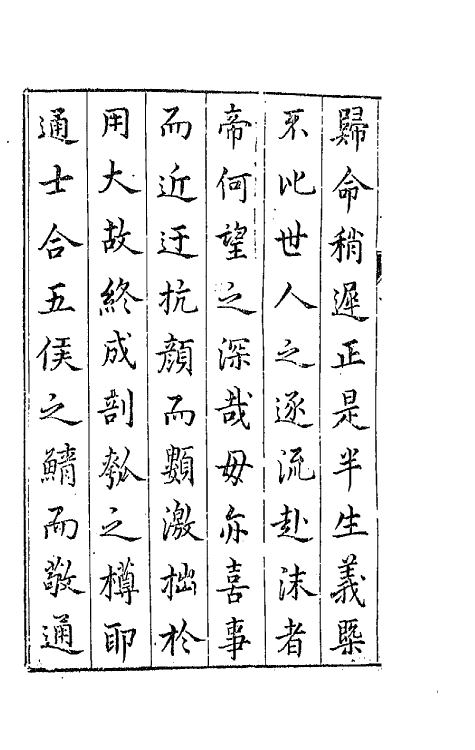 歸命稍遲正是半生義槩
不比世人之逐流赴沫者
帝何望之深哉毋亦喜事
而近迂抗顔而顭激拙於
用大故終成剖瓠之樽即
通士合五侯之鯖而敬通